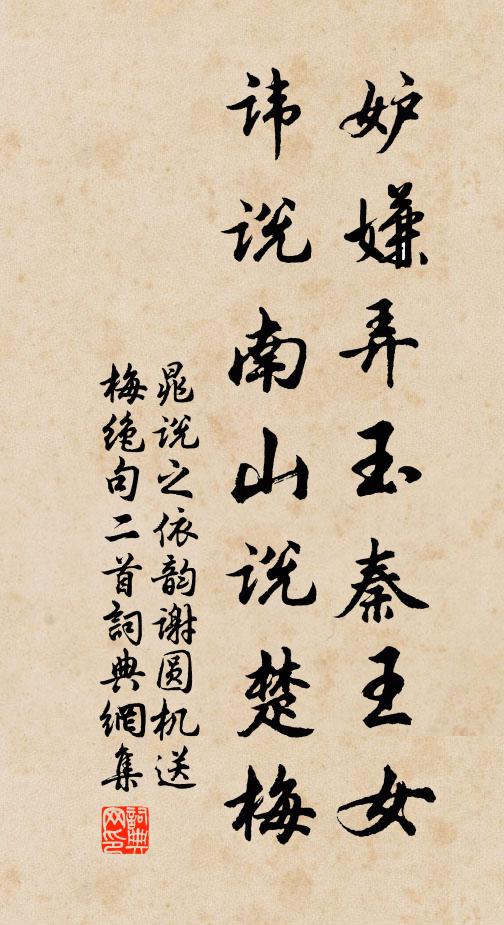 妒嫌弄玉秦王女
讳说南山说楚梅
晁说之依韵谢圆机送
梅绝句二首詞典網集
詞典
网印